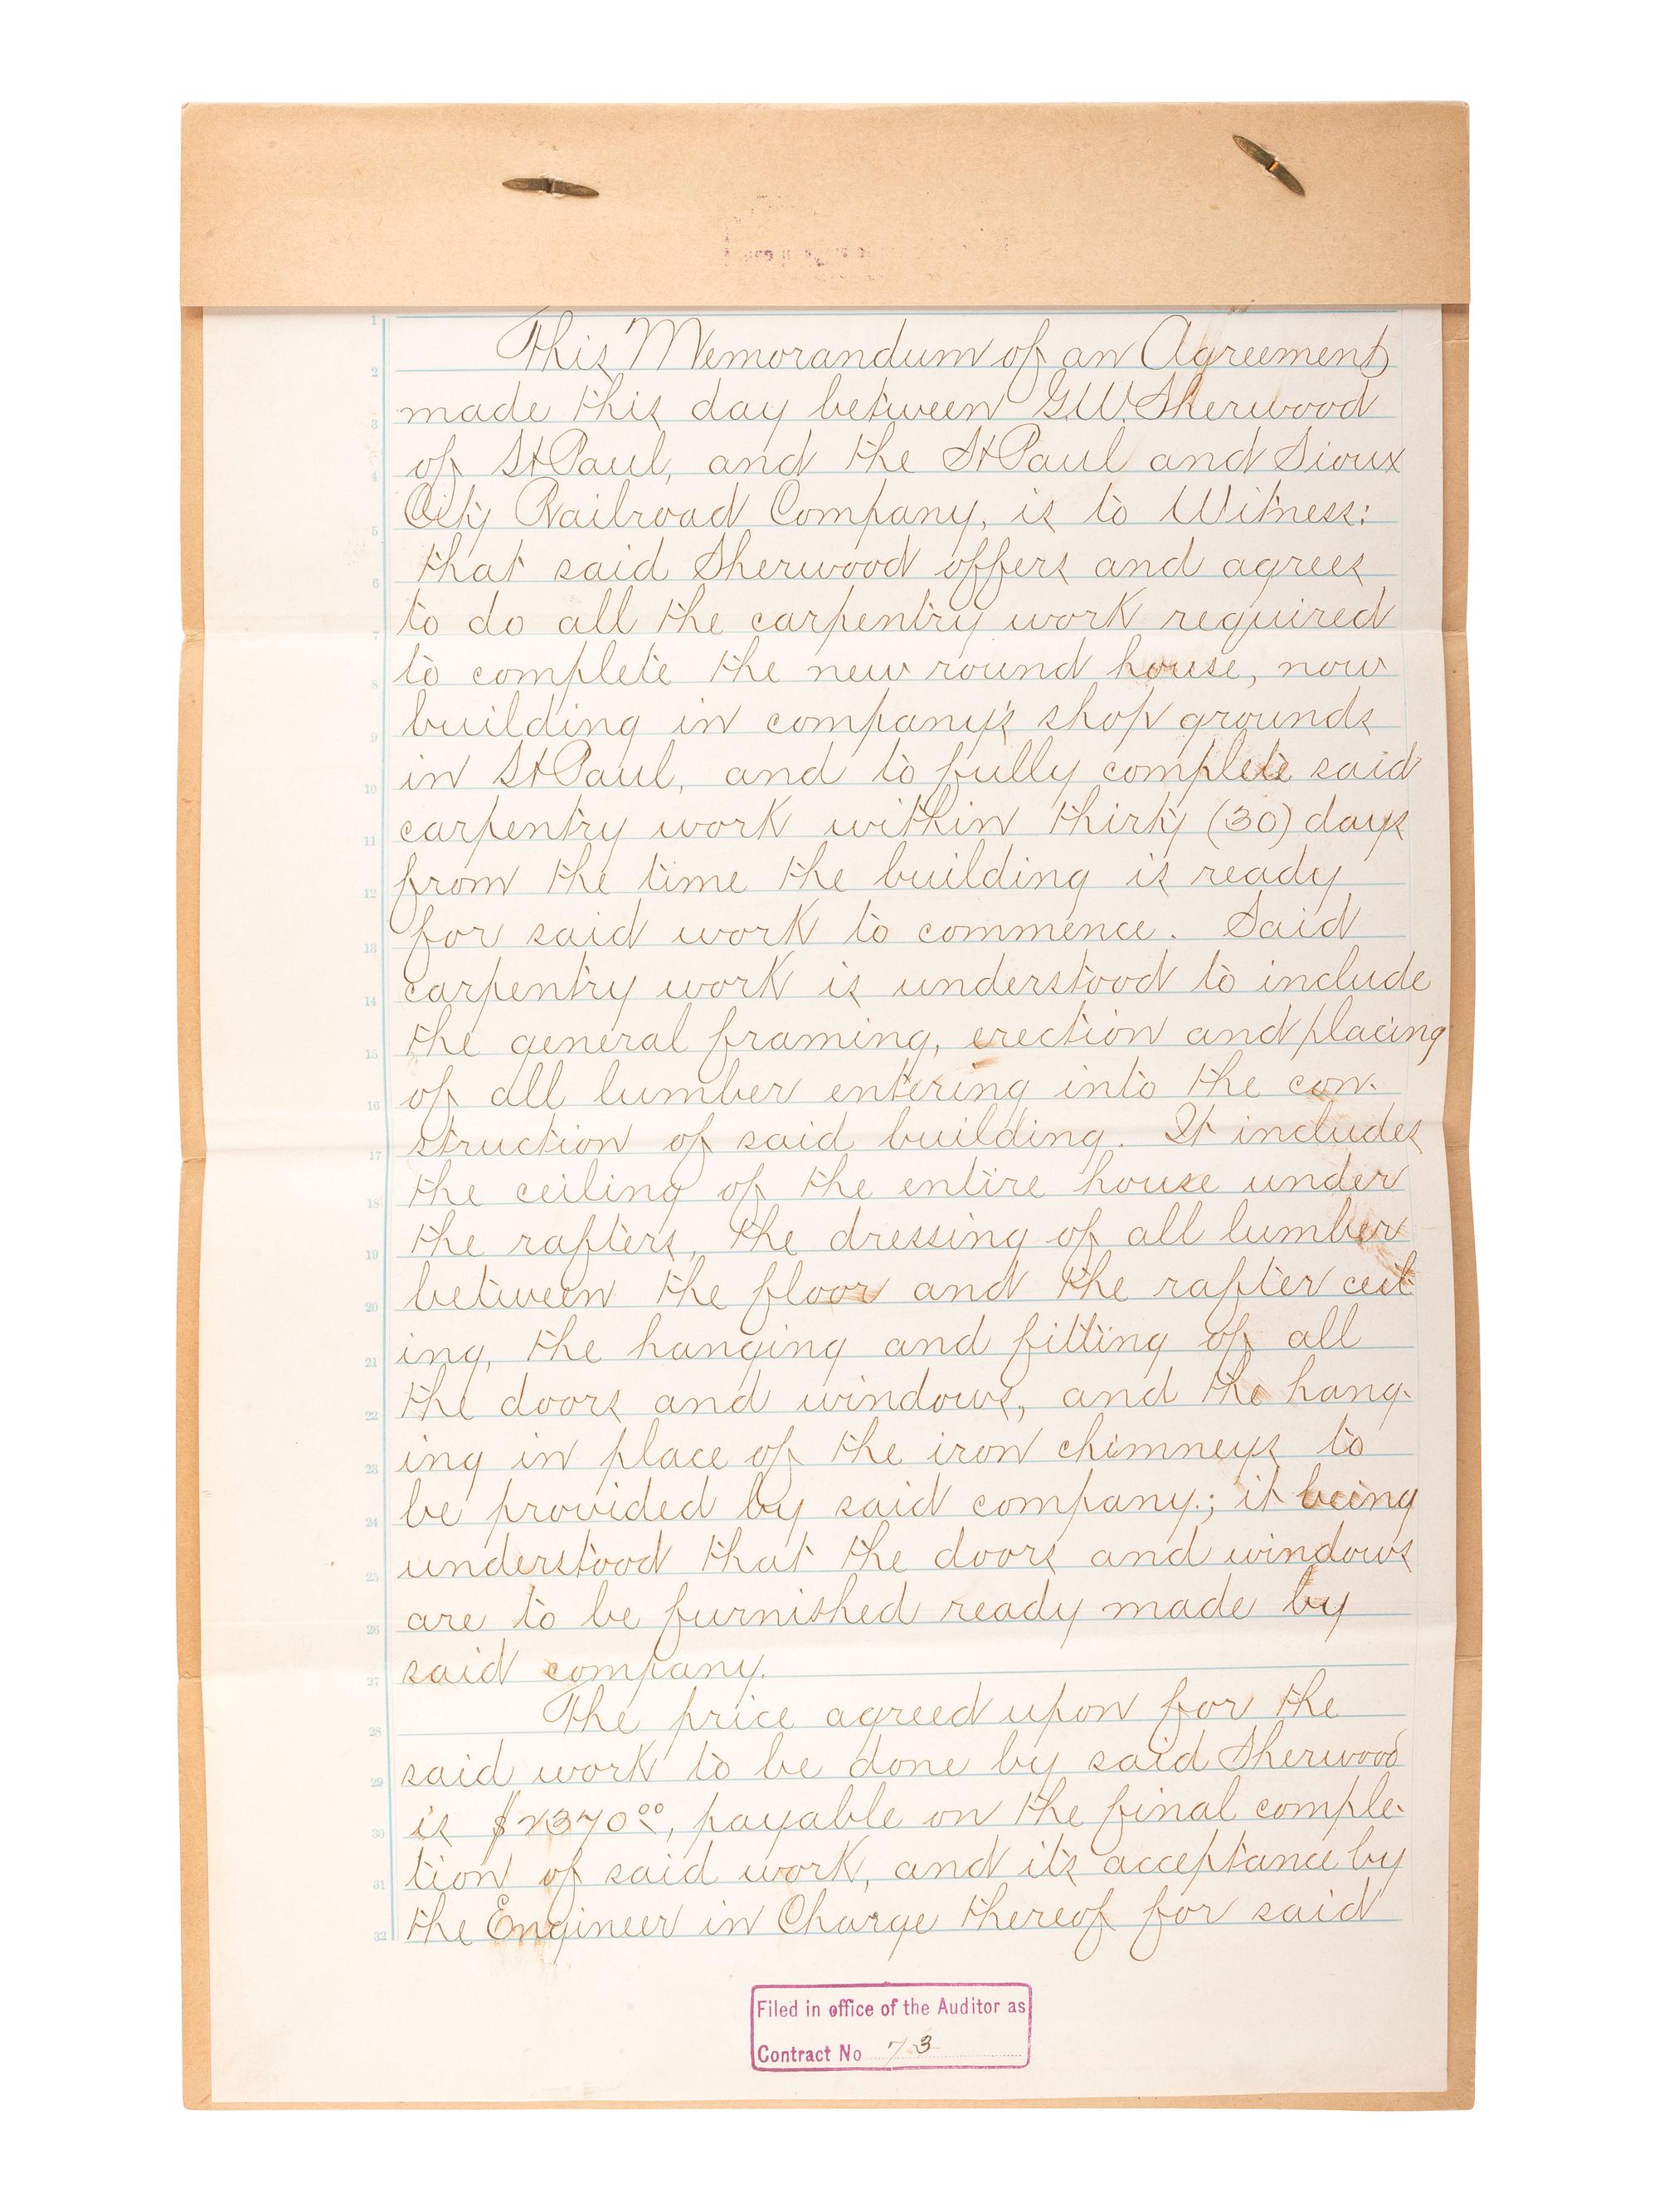 This Memorandum of an Agreement
made this day between G.W. Sherwood
of St Paul, and the St Paul and Sioux
City Railroad Company, is to Witness:
that said Sherwood offers and agrees
to do all the carpentry work required
to complete the new round house, now
building in company's shop grounds
in St Paul, and to fully complete said
carpentry work within thirty (30) days
from the time the building is ready
for said work to commence. Said
carpentry work is understood to include
the general framing, erection and placing
of all lumber entering into the con-
struction of said building. It includes
the ceiling of the entire house under
the rafters, the dressing of all lumber
between the floor and the rafter ceil-
ing, the hanging and fitting of all
the doors and windows, and the hang-
ing in place of the iron chimneys to
be provided by said company.; it being
understood that the doors and windows
are to be furnished ready made by
said company.
The price agreed upon for the
said work to be done by said Sherwood
is $2370⁰⁰, payable on the final comple-
tion of said work, and its acceptance by
the Engineer in Charge thereof for said
Filed in office of the Auditor as
Contract No 73